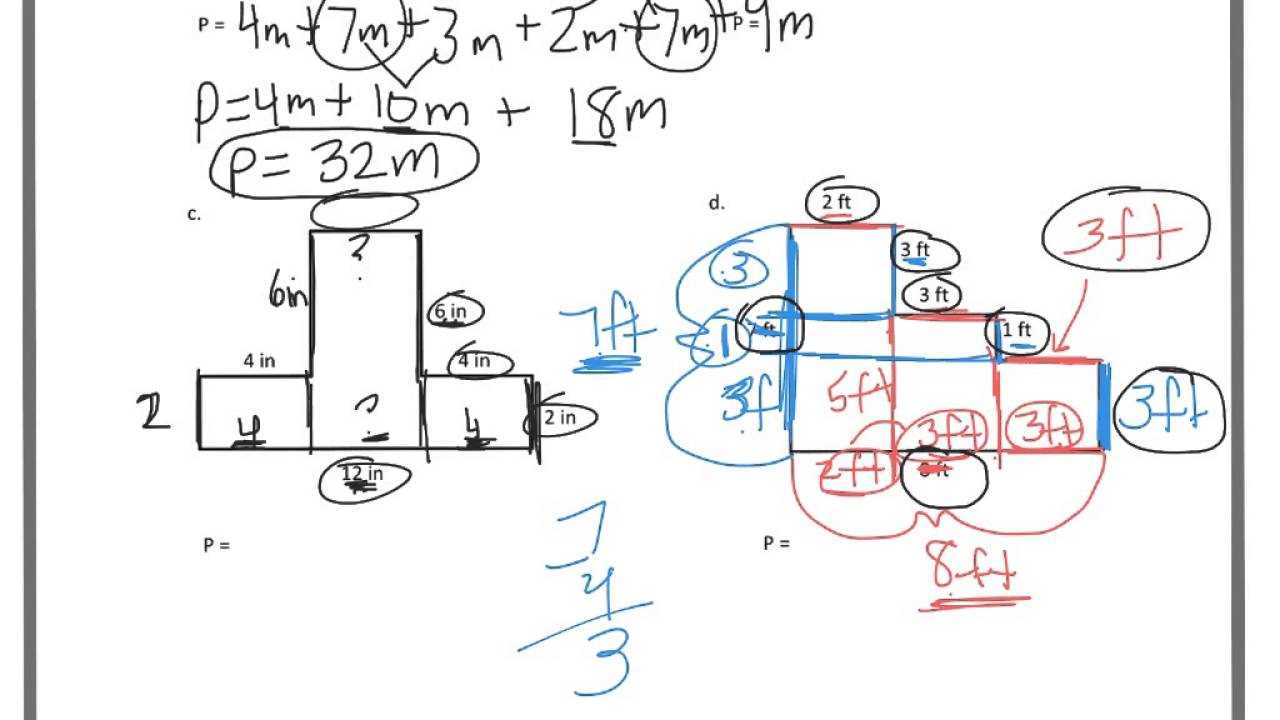 P = 4m + 7m + 3m + 2m + 7m + P = 9m
P = 4m + 10m + 18m
P = 32m
c.
?
6in
6 in
4 in
4 in
2
4
?
4
2 in
12 in
P =
d.
2 ft
3 ft
3
3 ft
3 ft
7ft
1
1 ft
3f
5ft
3ft
3ft
3ft
2ft
8 ft
P =
8ft
7
4
3